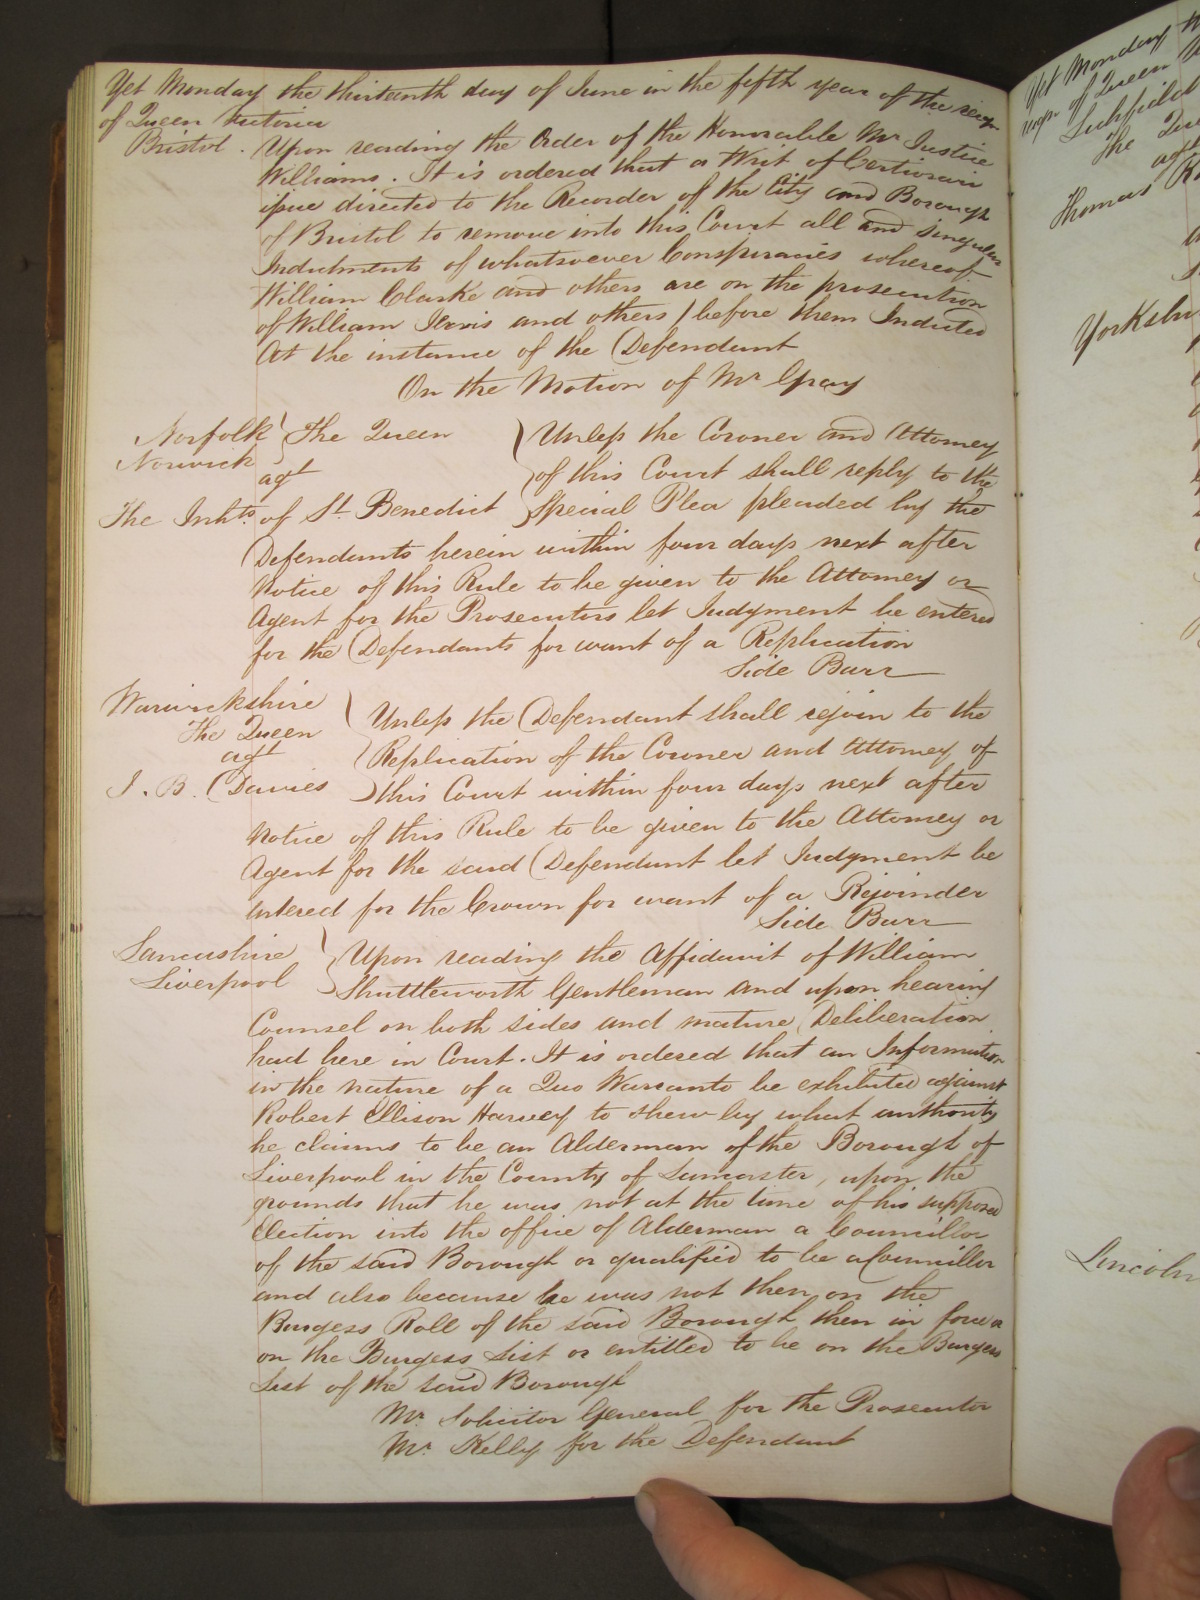 Yet Monday the thirteenth day of June in the fifth year of the reign
of Queen Victoria
Bristol. Upon reading the Order of the Honorable Mr Justice
Williams. It is ordered that a Writ of Certiorari
issue directed to the Recorder of the City and Borough
of Bristol to remove into this Court all and singular
Indictments of whatsoever Conspiracies whereof
William Clarke and others are on the prosecution
of William Jervis and others / before them Indicted
At the instance of the Defendant
On the Motion of Mr Gray
Norfolk } The Queen } Unless the Coroner and Attorney
Norwich agt of this Court shall reply to the
The Inhts of St Benedict Special Plea pleaded by the
Defendants herein within four days next after
Notice of this Rule to be given to the Attorney or
Agent for the Prosecutors let Judgment be entered
for the Defendants for want of a Replication
Side Barr
Warwickshire } Unless the Defendant shall rejoin to the
The Queen
agt Replication of the Coroner and Attorney of
J. B. Davies this Court within four days next after
Notice of this Rule to be given to the Attorney or
Agent for the said Defendant let Judgment be
entered for the Crown for want of a Rejoinder
Side Barr
Lancashire } Upon reading the Affidavit of William
Liverpool Shuttleworth Gentleman and upon hearing
Counsel on both sides and mature Deliberation
had here in Court. It is ordered that an Information
in the nature of a Quo Warranto be exhibited against
Robert Ellison Harvey to shew by what authority
he claims to be an Alderman of the Borough of
Liverpool in the County of Lancaster, upon the
grounds that he was not at the time of his supposed
Election into the office of Alderman a Councillor
of the said Borough or qualified to be a Councillor
and also because he was not then on the
Burgess Roll of the said Borough then in force or
on the Burgess List or entitled to be on the Burgess
List of the said Borough
Mr Solicitor General for the Prosecutor
Mr Kelly for the Defendant
Yet Monday
of Queen
Lichfield
The
agt
Thomas
Yorkshir
Lincoln